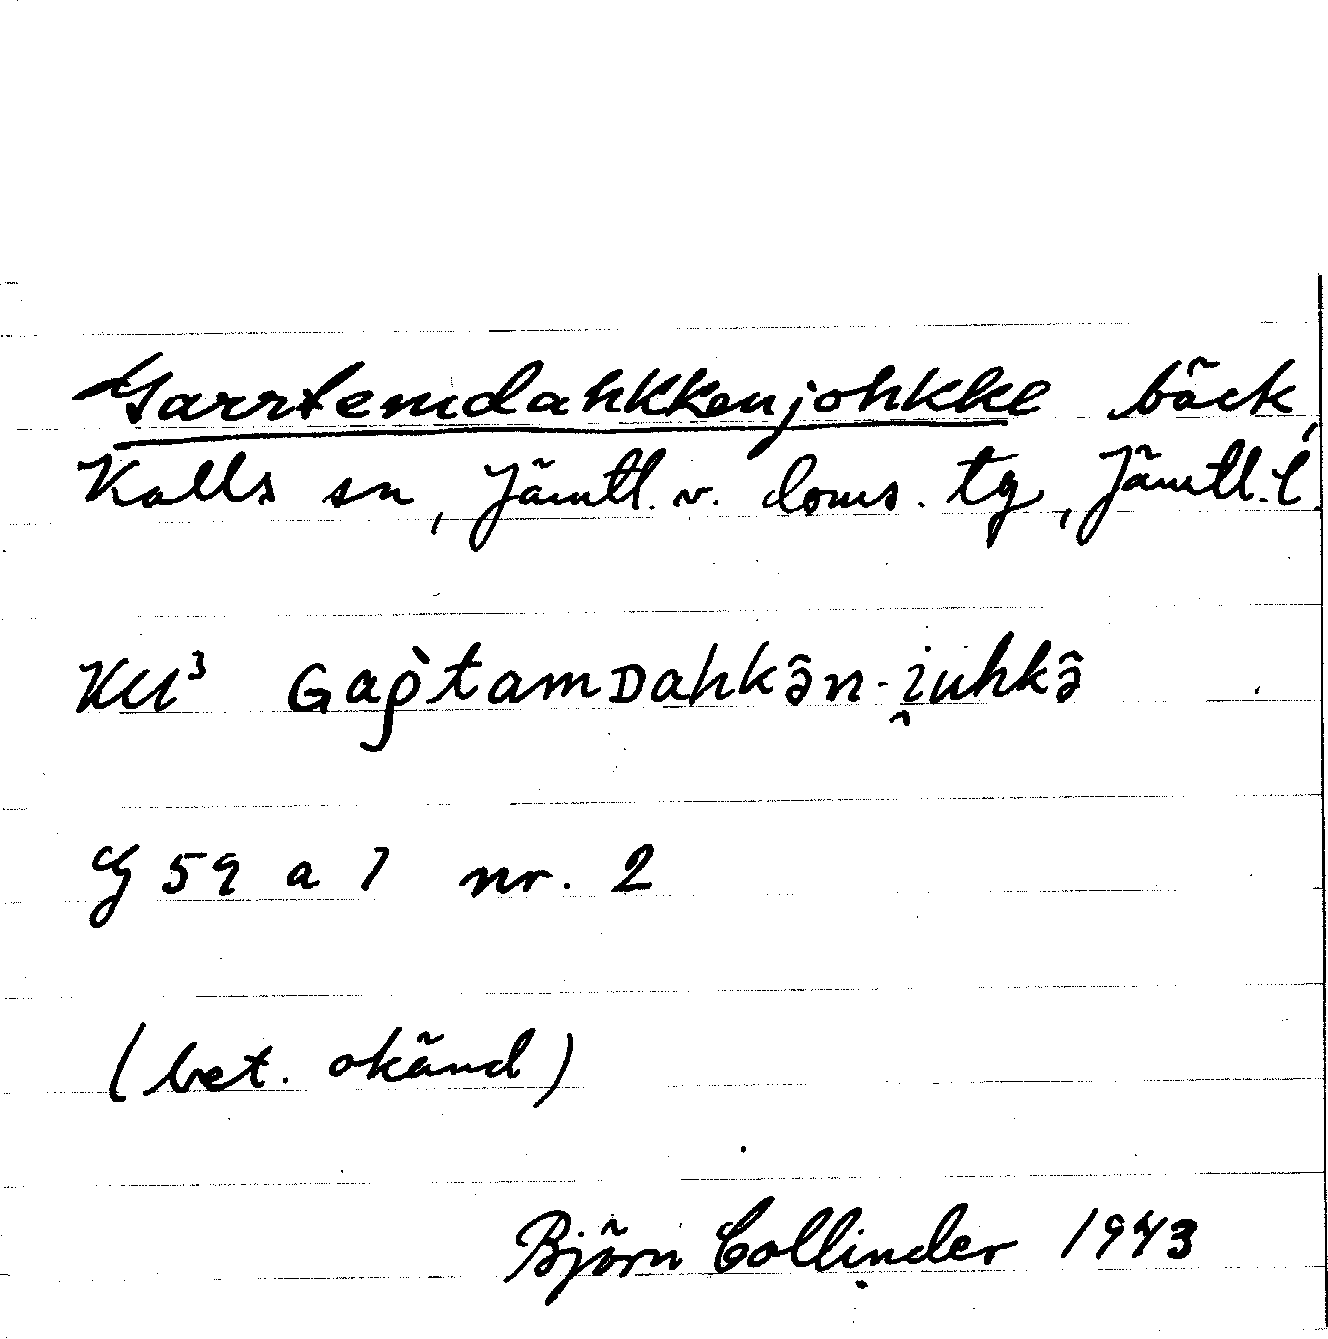 Garrtemdahkkenjohkke bäck,
Kalls sn, Jämtl. v. doms. tg, Jämtl. l.
KU³ Gaṕtamᴅahkə̂n-i̭uhkə̂
G 59 a 7 nr. 2
(bet. okänd)
Björn Collinder 1943